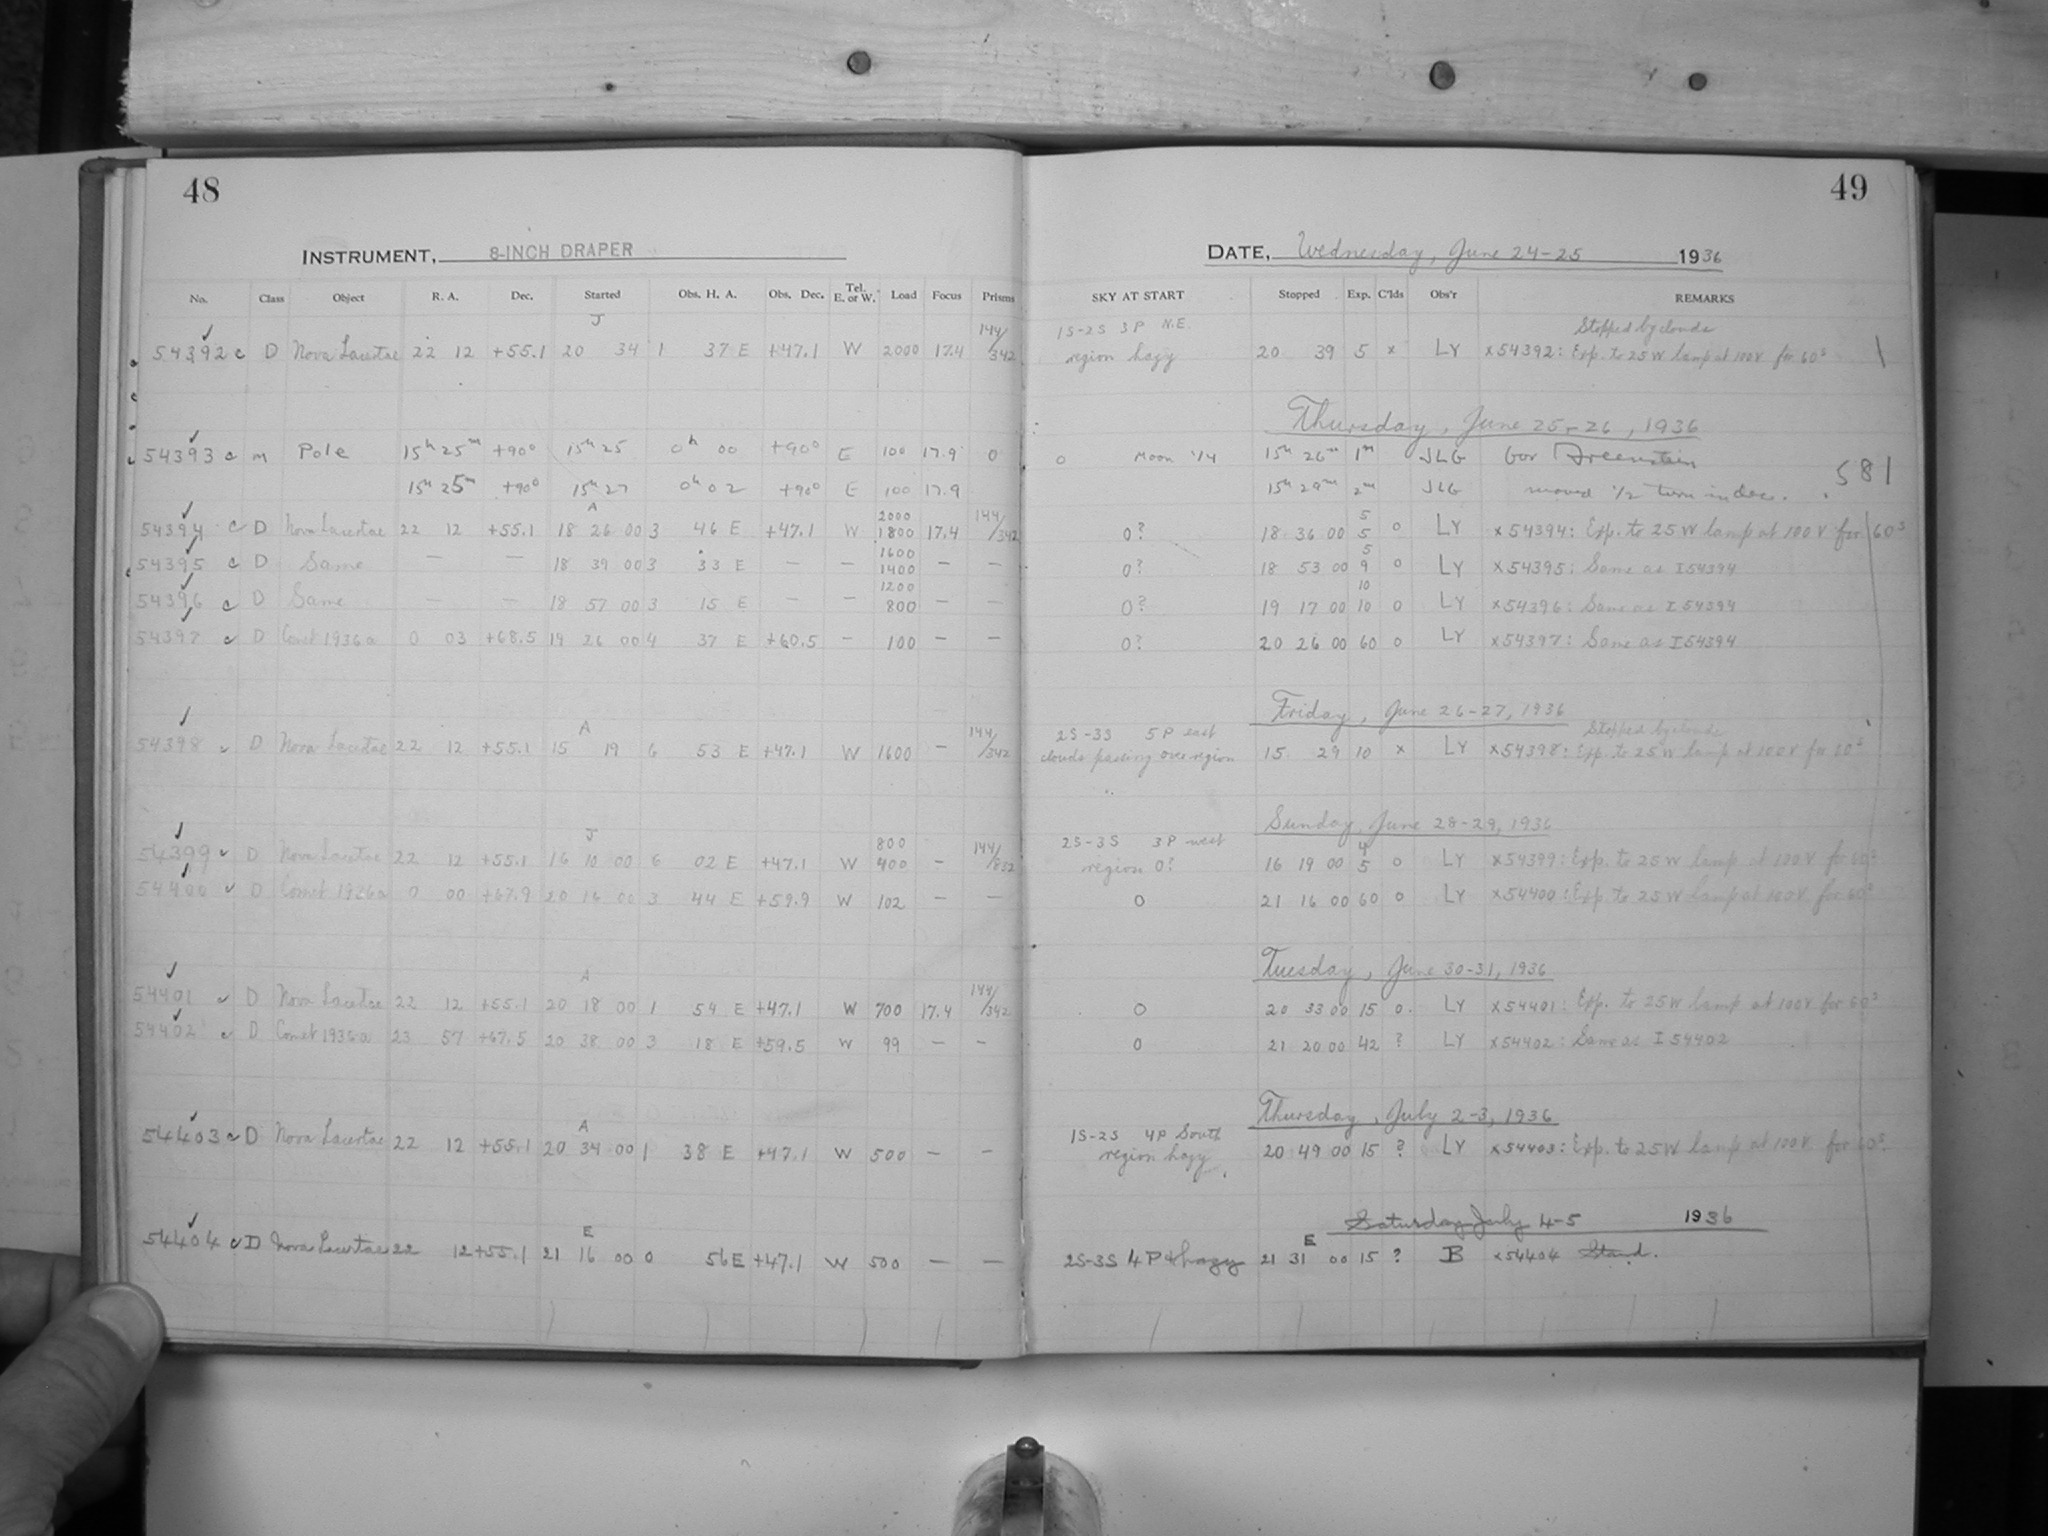 48
INSTRUMENT, 8-INCH DRAPER
No. Class Object R. A. Dec. Started Obs. H. A. Obs. Dec. Tel. E. or W. Load Focus Prisms
J 144/
54392 c D Nova Lacertae 22 12 +55.1 20 34 1 37 E +47.1 W 2000 17.4 342
54393 c m Pole 15h 25m +90° 15h 25 0h 00 +90° E 100 17.9 0
15h 25m +90° 15h 27 0h 02 +90° E 100 17.9
A 2000 144/
54394 c D Nova Lacertae 22 12 +55.1 18 26 00 3 46 E +47.1 W 1800 17.4 342
1600
54395 c D Same — — 18 39 00 3 33 E — — 1400 — —
1200
54396 c D Same — — 18 57 00 3 15 E — — 800 — —
54397 c D Comet 1936a 0 03 +68.5 19 26 00 4 37 E +60.5 — 100 — —
A 144/
54398 c D Nova Lacertae 22 12 +55.1 15 19 6 53 E +47.1 W 1600 — 342
J 800 144/
54399 c D Nova Lacertae 22 12 +55.1 16 10 00 6 02 E +47.1 W 400 —
54400 c D Comet 1936a 0 00 +67.9 20 16 00 3 44 E +59.9 W 102 — —
A 144/
54401 c D Nova Lacertae 22 12 +55.1 20 18 00 1 54 E +47.1 W 700 17.4 342
54402 c D Comet 1936a 23 57 +67.5 20 38 00 3 18 E +59.5 W 99 — —
A
54403 c D Nova Lacertae 22 12 +55.1 20 34 00 1 38 E +47.1 W 500 — —
E
54404 c D Nova Lacertae 22 12 +55.1 21 16 00 0 56 E +47.1 W 500 — —
49
DATE, Wednesday, June 24-25 1936
SKY AT START Stopped Exp. C'lds Obs'r REMARKS
1S-2S 3P N.E. Stopped by clouds
region hazy 20 39 5 x LY x54392: Exp. to 25 W lamp at 100V for 60s
Thursday, June 25-26, 1936
0 Moon 1/4 15h 26m 1m JLG for Greenstein
581
15h 29m 2m JLG moved 1/2 turn in dec.
5
0? 18 36 00 5 0 LY x54394: Exp. to 25 W lamp at 100 V for 60s
5
0? 18 53 00 9 0 LY x54395: Same as I 54394
10
0? 19 17 00 10 0 LY x54396: Same as I 54394
0? 20 26 00 60 0 LY x54397: Same as I 54394
Friday, June 26-27, 1936
2S-3S 5P east Stopped by clouds
clouds passing over region 15 29 10 x LY x54398: Exp. to 25 W lamp at 100V for 60s
Sunday, June 28-29, 1936
2S-3S 3P west 4
region 0? 16 19 00 5 0 LY x54399: Exp. to 25 W lamp at 100V for 60s
0 21 16 00 60 0 LY x54400: Exp. to 25 W lamp at 100V for 60s
Tuesday, June 30-31, 1936
0 20 33 00 15 0 LY x54401: Exp. to 25W lamp at 100V for 60s
0 21 20 00 42 ? LY x54402: Same as I 54402
Thursday, July 2-3, 1936
1S-2S 4P South
region hazy 20 49 00 15 ? LY x54403: Exp. to 25W lamp at 100V for 60s
Saturday July 4-5 1936
E
2S-3S 4P + hazy 21 31 00 15 ? B x54404 Stand.